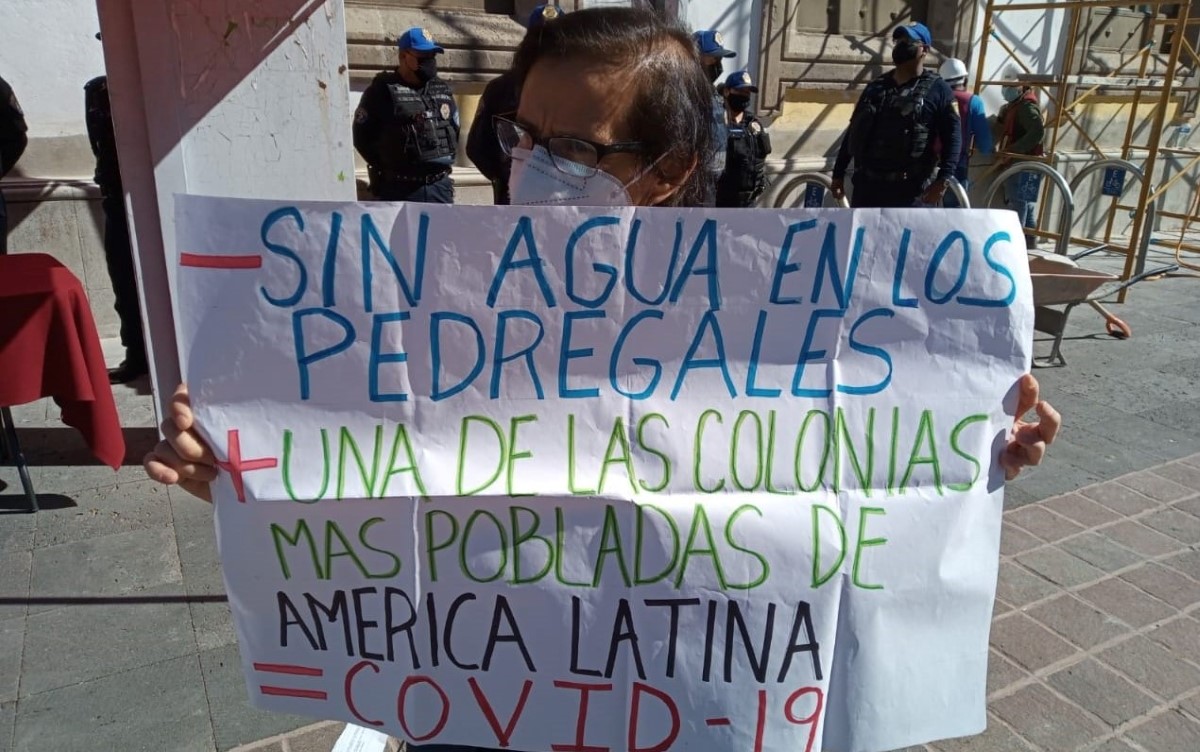 - SIN AGUA EN LOS
PEDREGALES
+ UNA DE LAS COLONIAS
MAS POBLADAS DE
AMERICA LATINA
= COVID-19